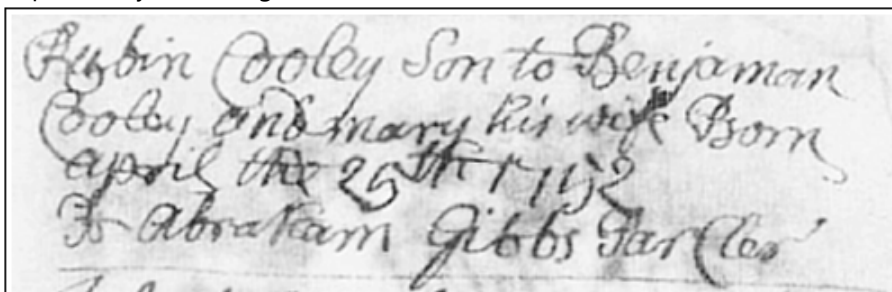 Rubin Cooley Son to Benjaman
Cooley and mary his wife Born
April the 25th 1752
Abraham Gibbs Clar